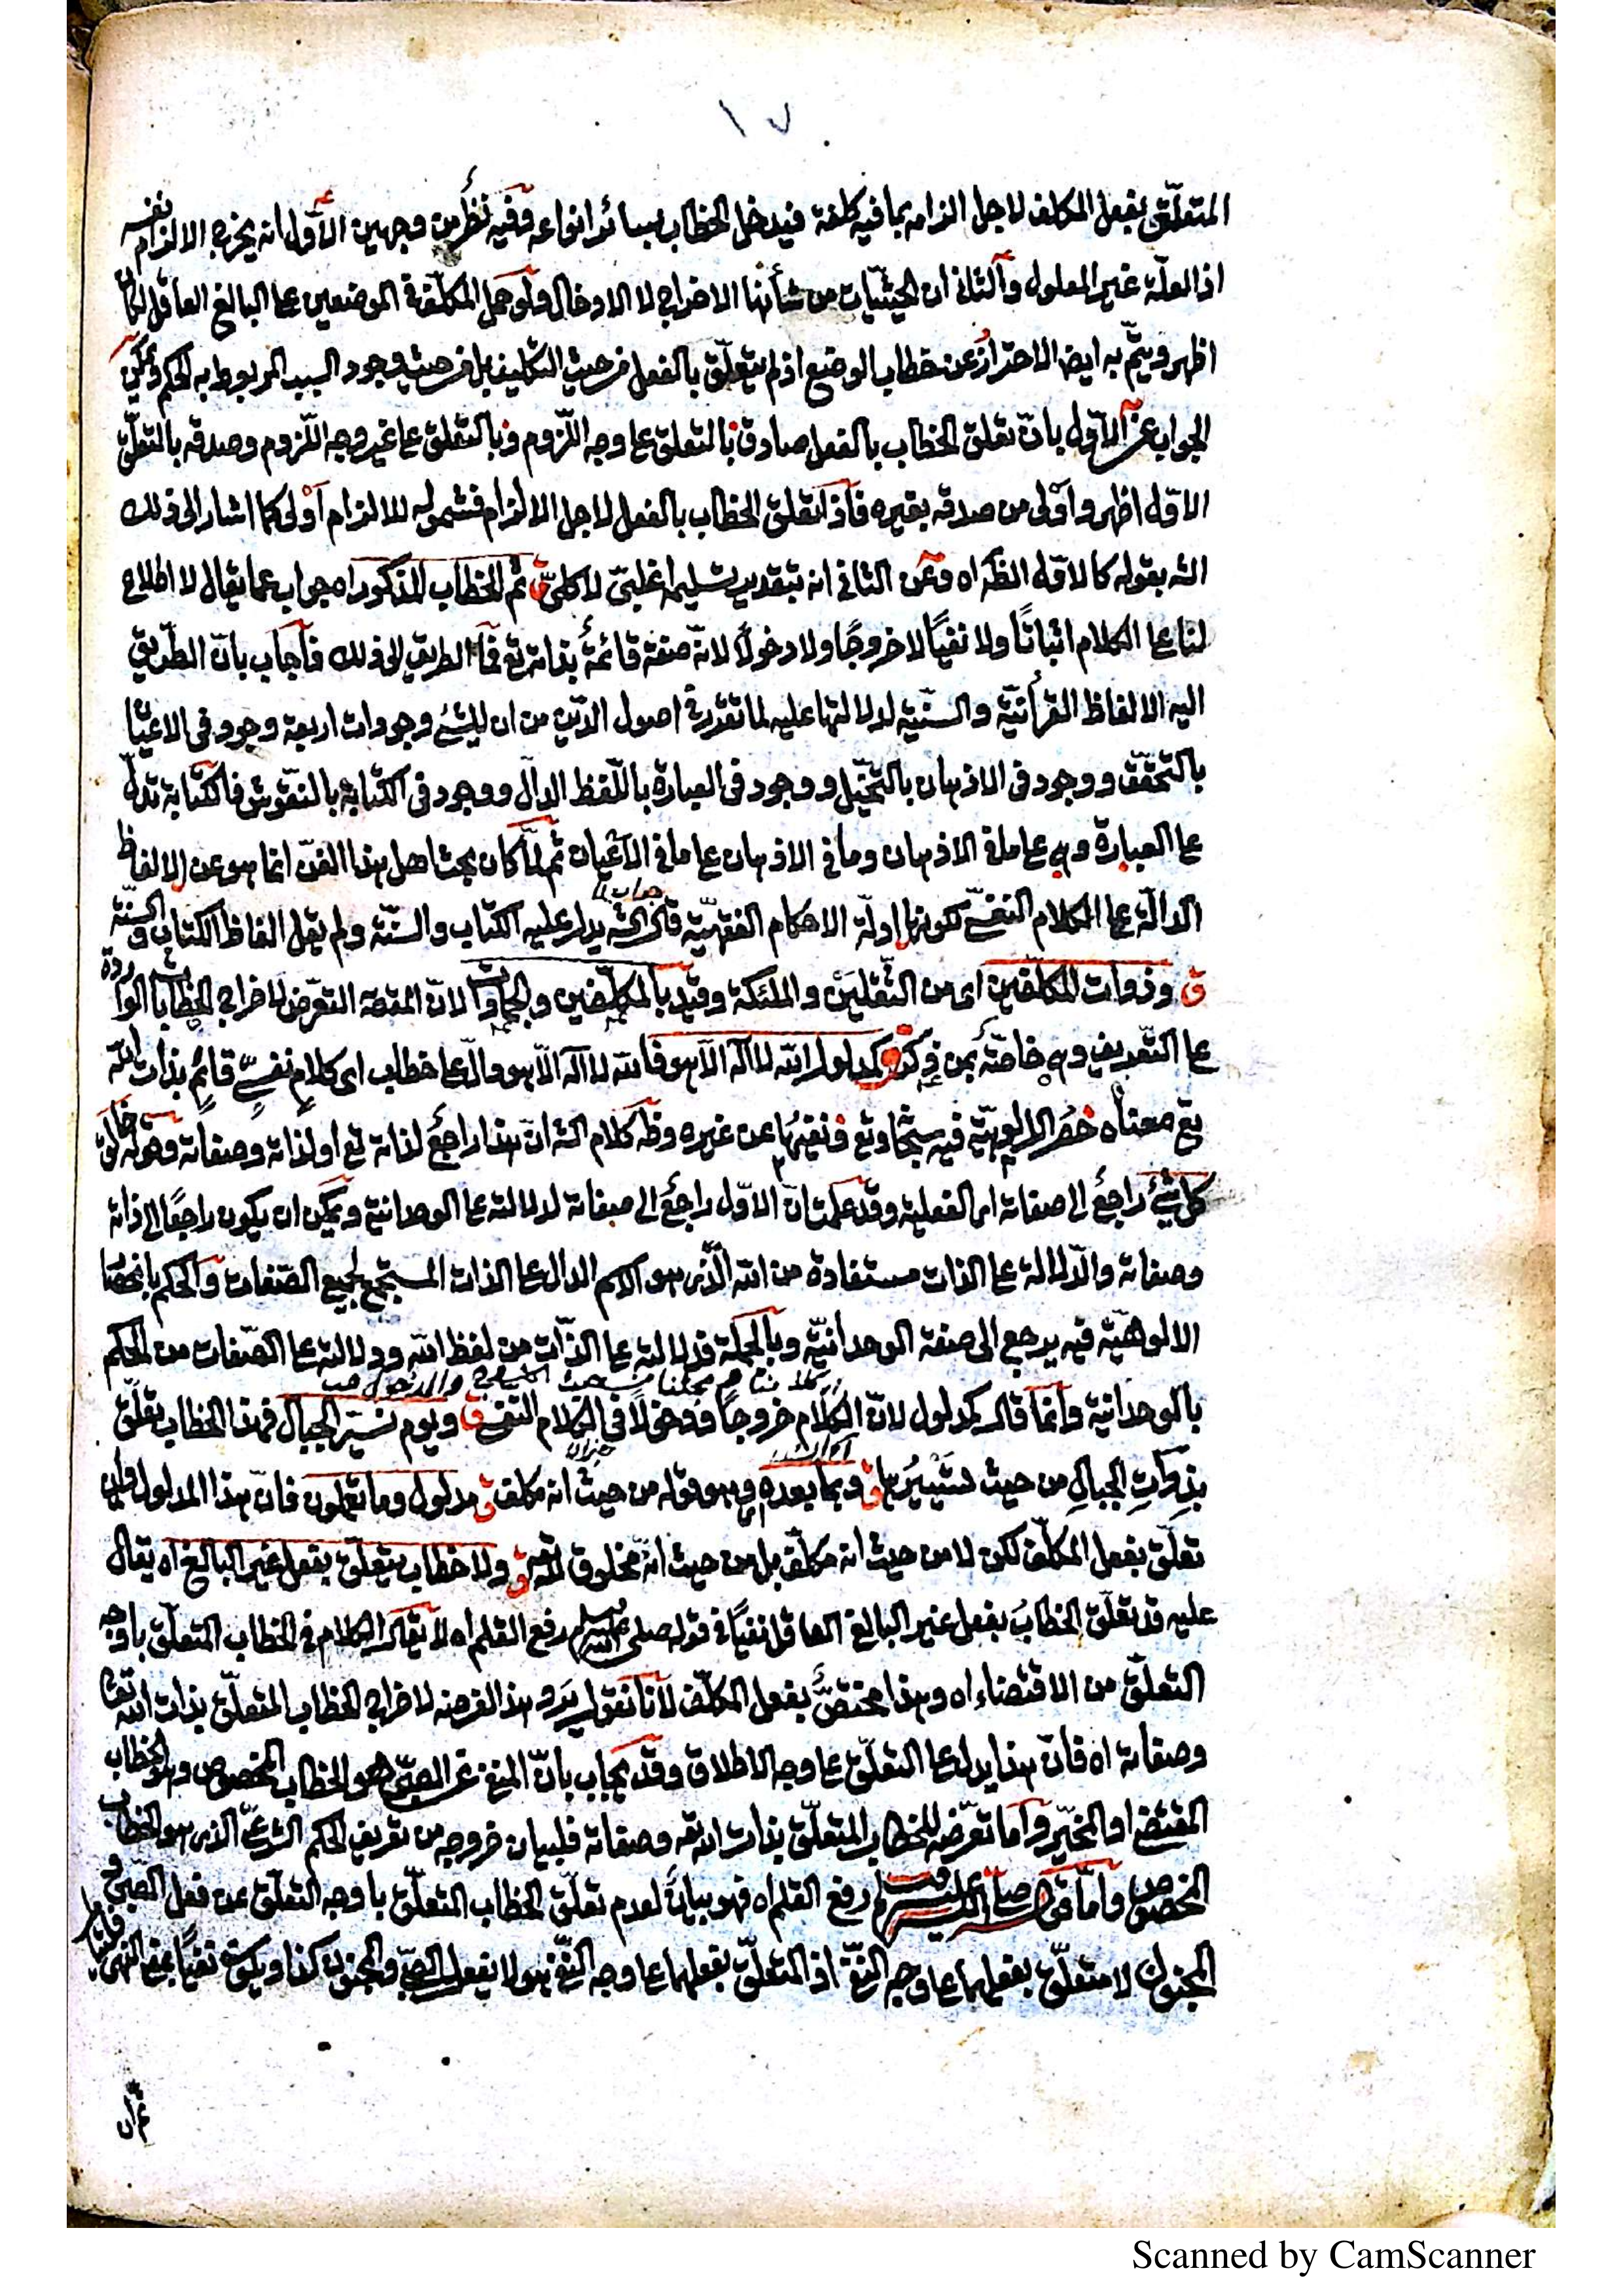 ١٧
المتعلّق بفعل المكلف لاجل الزامه بما فيه كلفة فيدخل الخطاب بسائر انواعه وفيه نظر من وجهين الاول انه يخرج الالزام نفسه
اذ العلّة غير المعلول والثاني ان الحيثيات من شأنها الاخراج لا الادخال ولو حمل المكلف في الموضعين عا البالغ العاقل لكان
اظهر ويتمّ به ايضا الاحتراز عن خطاب الوضع اذ لم يتعلّق بالفعل من حيث التكليف بل من حيث وجود السبب المربوط به الحكم ويمكن
الجواب عن الاول بانّ تعلق الخطاب بالفعل صادق بالتعلق عا وجه اللّزوم وبالتعلق عا غير وجه اللّزوم وصدقه بالتعلّق
الاول اظهر واَوْلى من صدقه بغيره فاذا تعلق الخطاب بالفعل لاجل الالزام فشموله للالزام اَوْلى كما اشار الى ذلك
الشه بقوله كالاول الظه اه وعن الثاني انه بتقدير تسليمه اغلبيّ لا كليّ ق ثم الخطاب المذكور اه جواب عما يقال لا اطلاع
لنا عا الكلام اثباتًا ولا نفيًا لا خروجًا ولا دخولًا لانّه صفة قائمة بذاته تع فما الطريق الى ذلك فاجاب بانّ الطّريق
اليه الالفاظ القرآنيّة والسنّية لدلالتها عليه لما تقرر في اصول الدّين من ان للشئ وجودات اربعة وجود في الاعيان
بالتحقّق ووجود في الاذهان بالتخيّل ووجود في العبارة باللّفظ الدالّ ووجود في الكتابة بالنقوش فالكتابة تدلّ
عا العبارة وهي عا ما في الاذهان وما في الاذهان عا ما في الاَعْيان ثم لمّا كان بحث اهل هذا الفنّ انما هو عن الالفاظ
الدالّة عا الكلام النفسيّ لكونها ادلّة الاحكام الفقهيّة قال الشه يدل عليه الكتاب والسّنّة ولم يقل الفاظ الكتاب والسنّة
ق وذوات المكلّفين اى من الثّقلَيْن والملئكة وقيد بالمكلّفين والجمادات لانّ المقصه التعرّض لاخراج الخطابات الواردة
عا التّعريف وهي خاصّة بمن ذكر ق كمدلول الله لا اله الّا هو فالله لا اله الّا هو دالّ عا خطاب اى كلام نفسيّ قائم بذات الله
تع معناه حَصْر الالوهيّة فيه سبحا وتع ونفيُها عن غيره وظه كلام الشه انّ هذا راجع لذاته تع او لذاته وصفاته وقوله خالق
كل شئ راجعٌ الى صفاته اى الفعلية وقد علمت انّ الاوّل راجعٌ الى صفاته لدلالته عا الوحدانية ويمكن ان يكون راجعًا الى ذاته
وصفاته والدّلالة عا الذات مستفادة من الله الّذى هو الاسم الدال عا الذات المستجمع لجميع الصّفات والحكم بانحصار
الالوهيّة فيه يرجع الى صفة الوحدانيّة وبالجملة فدلالته عا الذّات من لفظ الله ودلالته عا الصّفات من الحكم
بالوحدانية وانما قال كمدلول لانّ الكلام خروجًا ودخولًا في الكلام النفسيّ ق ويوم نسيّر الجبال فهذا الخطاب تعلّق
بذوات الجبال من حيث تسييرها ق وبما بعده وهو قوله من حيث انه مكلف ق مدلول وما تعملون فانّ هذا المدلول وان
تعلّق بفعل المكلّف لكن لا من حيث انه مكلّف بل من حيث انّه مخلوق لله ق ولا خطاب يتعلّق بفعل غير البالغ اه يقال
عليه قد تعلّق الخطاب بفعل غير البالغ العاقل نفيًا في قوله صلى الله عليه وسلم رفع القلم اه لا يقال الكلام في الخطاب المتعلّق باوجه
التعلّق من الاقتضاء اه وهذا مختصٌّ بفعل المكلّف لانا نقول يرد هذا الغرضه لاخراج الخطاب المتعلّق بذات الله تعا
وصفاته اه فانّ هذا يدل عا التعلّق عا وجه الاطلاق وقد يجاب بانّ المنفي عن الصبيّ هو الخطاب المخصوص وهو الخطاب
المقتضي او المخيّر واما تعرّضه للخطاب المتعلّق بذات الله وصفاته فلبيان خروجه من تعريف الحكم الشرعيّ الذى هو الخطاب
المخصوص وامّا قوله صلى الله عليه وسلم رفع القلم اه فهو بيانٌ لعدم تعلّق الخطاب المتعلّق باوجه التعلّق عن فعل الصّبيّ و
المجنون لا متعلّق بفعلهما عا وجه النفي اذ المتعلّق بفعلهما عا وجه النّفي هو لا يفعل الصّبيّ والمجنون كذا ويكون نفيًا بمعنى النهي
Scanned by CamScanner